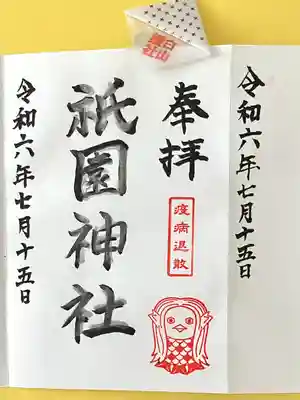 令和六年七月十五日
奉拝
疫病退散
祇園神社
令和六年七月十五日